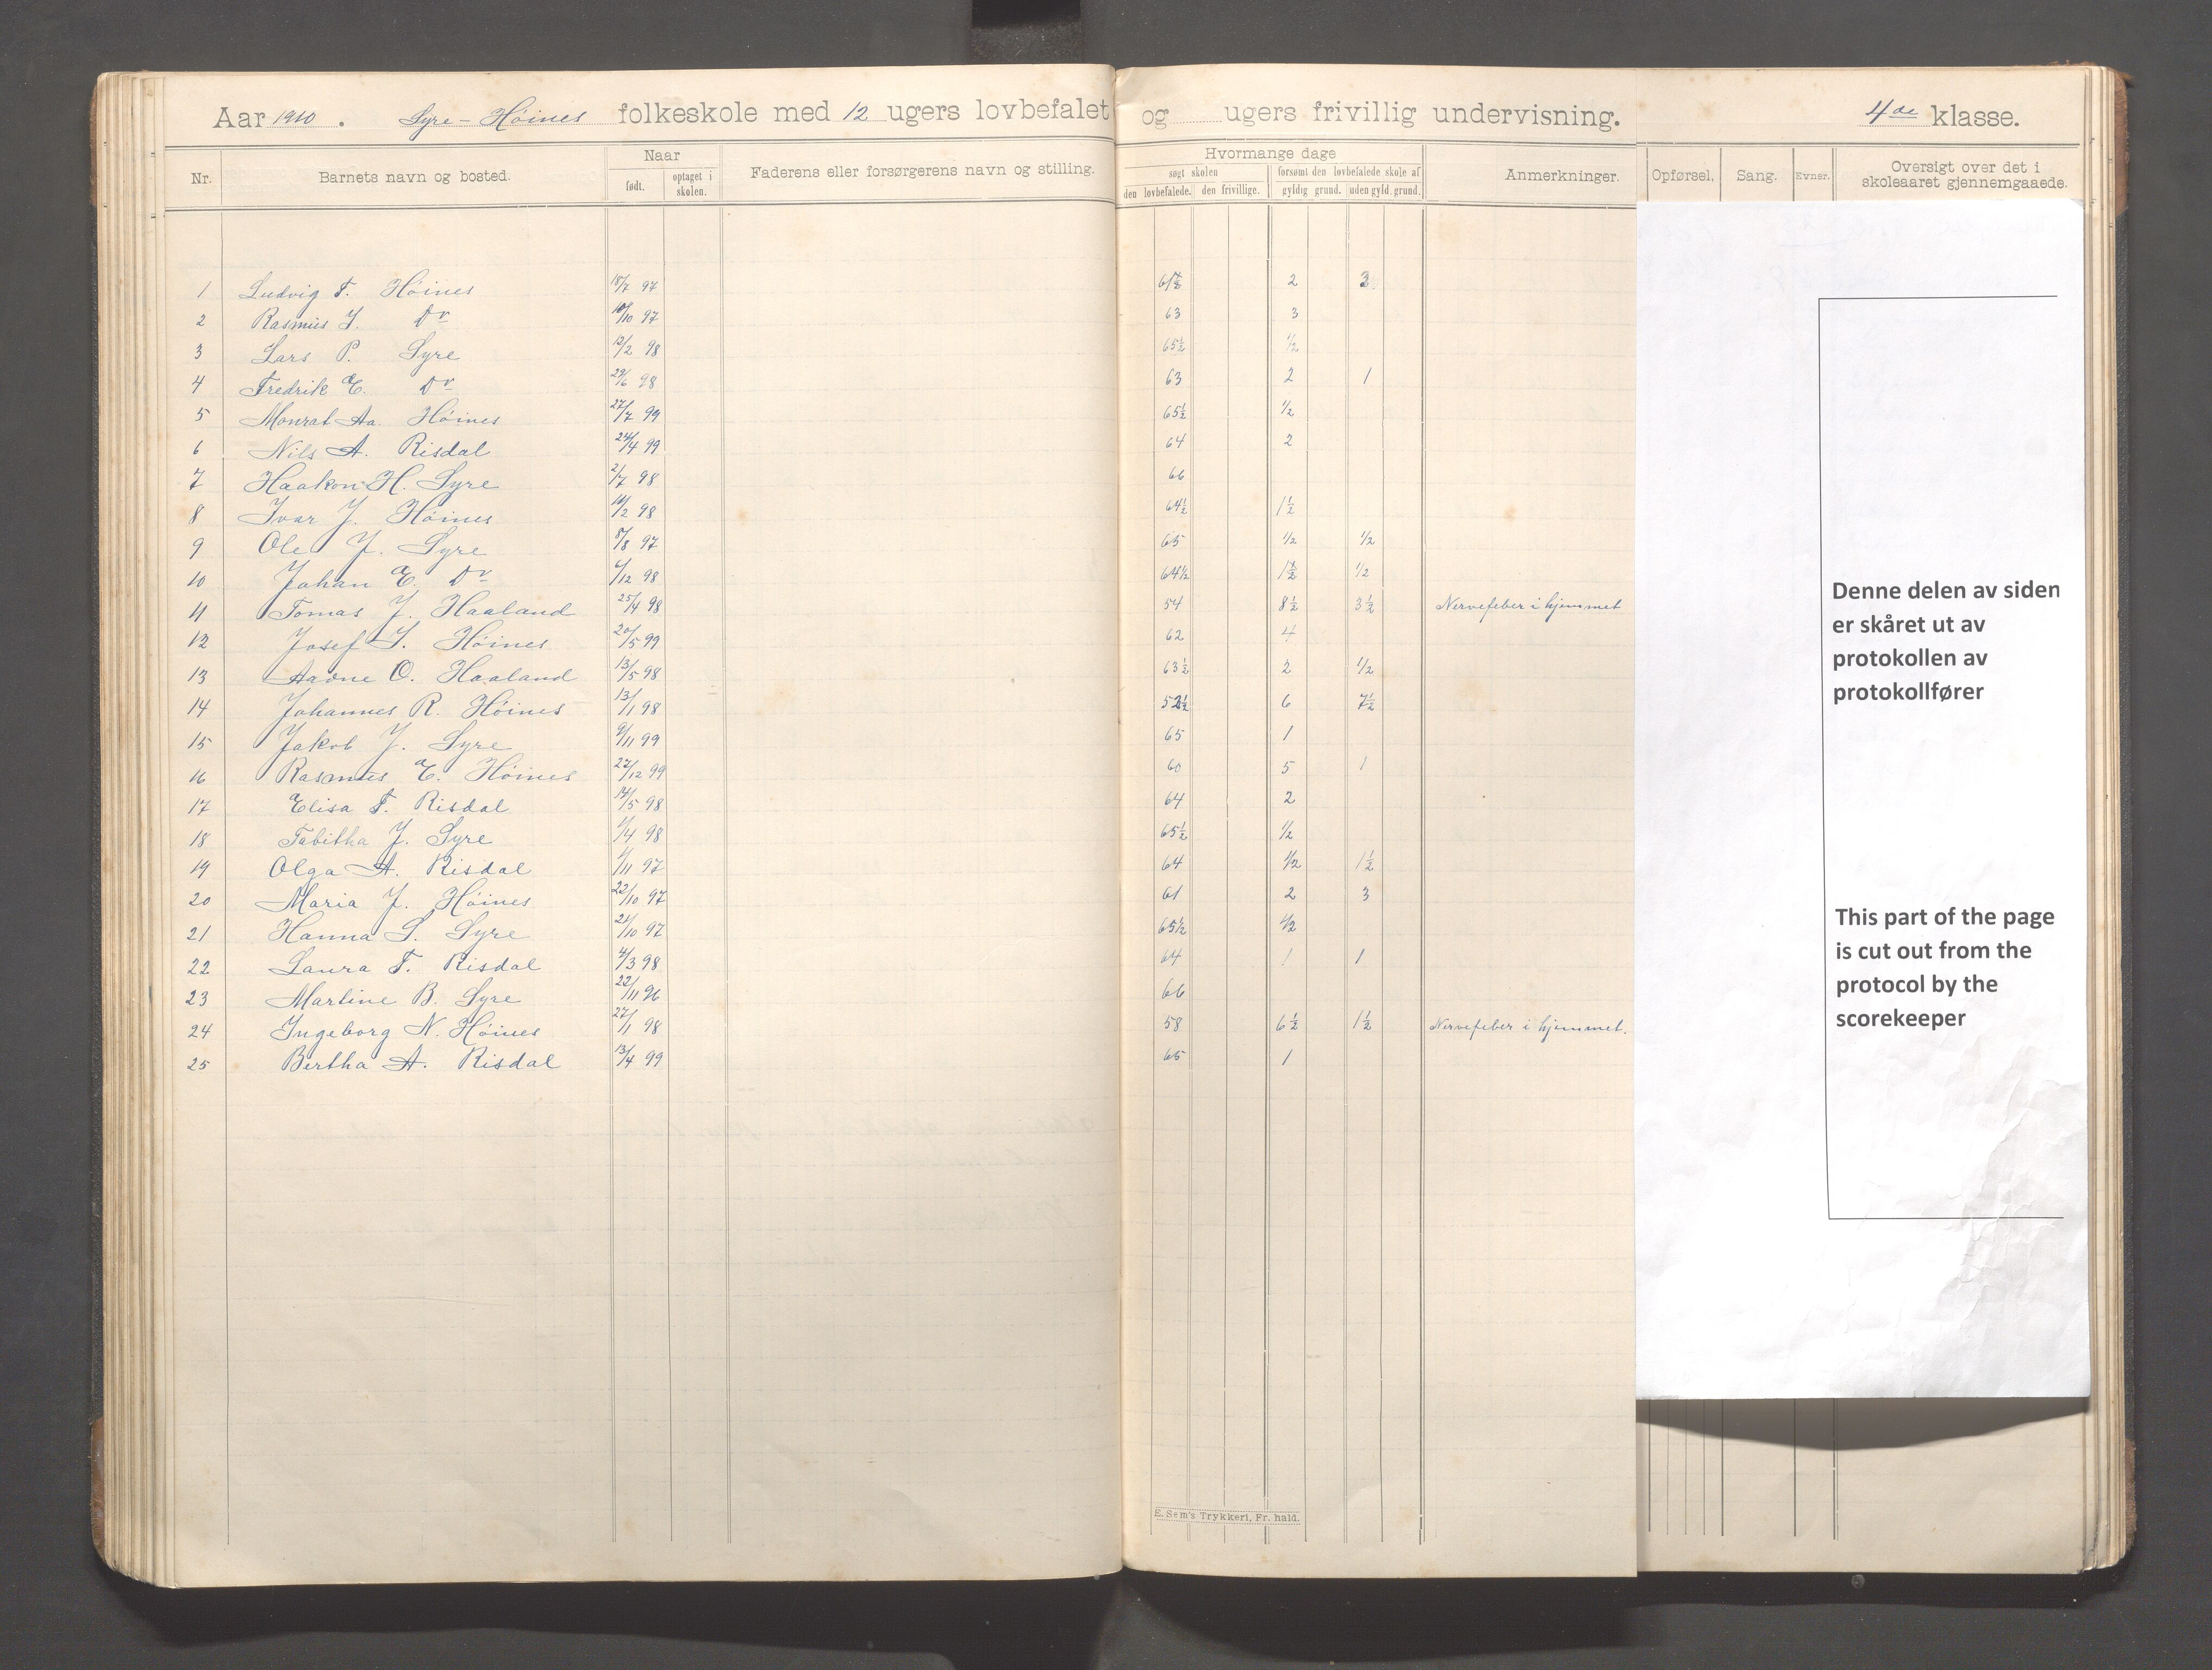 Aar 1910. Syre - Höines folkeskole med 12 ugers lovbefalet og ugers frivillig undervisning. 4de klasse.
Nr. Barnets navn og bosted. Naar født. optaget i skolen. Faderens eller forsørgerens navn og stilling. Hvormange dage søgt skolen den lovbefalede. den frivillige. forsømt den lovbefalede skole af gyldig grund. uden gyld. grund. Anmerkninger. Opførsel. Sang. Evner. Oversigt over det i skoleaaret gjennemgaaede.
1 Ludvig T. Höines 18/7 97 61½ 2 3
2 Rasmus J. Do 10/10 97 63 3
3 Lars P. Syre 12/2 98 65½ ½
4 Fredrik E. Do 29/6 98 63 2 1
5 Monrat Aa. Höines 27/7 99 65½ ½
6 Nils A. Risdal 24/4 99 64 2
7 Haakon H. Syre 2/7 98 66
8 Ivar J. Höines 14/2 98 64½ 1½
9 Ole J. Syre 8/8 97 65 ½ ½
10 Johan E. Do 6/12 98 64½ 1½ ½
11 Tomas J. Haaland 25/4 98 54 8½ 3½ Nervefeber i hjemmet
12 Josef I. Höines 20/5 99 62 4
13 Aadne O. Haaland 13/5 98 63½ 2 ½
14 Johannes R. Höines 13/1 98 52½ 6 7½
15 Jakob J. Syre 9/11 99 65 1
16 Rasmus E. Höines 27/12 99 60 5 1
17 Elisa T. Risdal 14/5 98 64 2
18 Tabitha J. Syre 1/4 98 65½ ½
19 Olga A. Risdal 1/11 97 64 ½ 1½
20 Maria J. Höines 22/10 97 61 2 3
21 Hanna S. Syre 21/10 97 65½ ½
22 Laura T. Risdal 4/3 98 64 1 1
23 Martine B. Syre 22/11 96 66
24 Ingeborg N. Höines 27/1 98 58 6½ 1½ Nervefeber i hjemmet.
25 Bertha A. Risdal 13/4 99 65 1
E. Sem's Trykkeri, Fr. hald.
Denne delen av siden
er skåret ut av
protokollen av
protokollfører
This part of the page
is cut out from the
protocol by the
scorekeeper